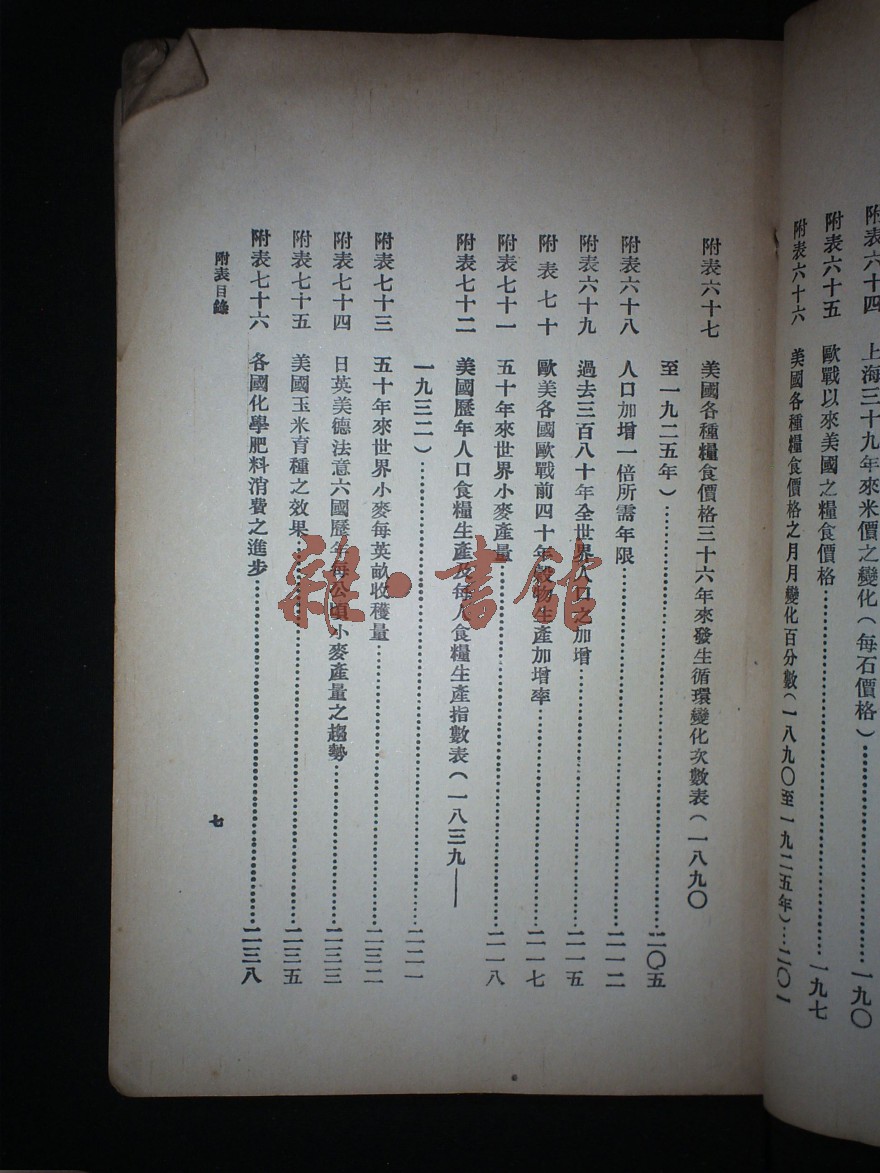 附表六十四 上海三十九年來米價之變化(每石價格)…一九〇
附表六十五 歐戰以來美國之糧食價格…一九七
附表六十六 美國各種糧食價格之月月變化百分數(一八九〇至一九二五年)…二〇一
附表六十七 美國各種糧食價格三十六年來發生循環變化次數表(一八九〇
至一九二五年)…二〇五
附表六十八 人口加增一倍所需年限…二一二
附表六十九 過去三百八十年全世界人口之加增…二一五
附表七十 歐美各國歐戰前四十年穀物生產加增率…二一七
附表七十一 五十年來世界小麥產量…二一八
附表七十二 美國歷年人口食糧生產及每人食糧生產指數表(一八三九——
一九三二)…二二一
附表七十三 五十年來世界小麥每英畝收穫量…二三二
附表七十四 日英美德法意六國歷年每公頃小麥產量之趨勢…二三三
附表七十五 美國玉米育種之效果…二三五
附表七十六 各國化學肥料消費之進步…二三八
附表目錄 七
雜·書館